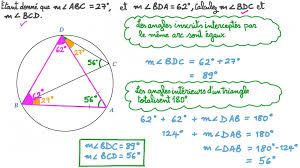 Étant donné que m∠ABC = 27°, et m∠BDA = 62°, calculez m∠BDC et
m∠BCD.
Les angles inscrits interceptés par
le même arc sont égaux
m∠BDC = 62° + 27°
= 89°
Les angles intérieurs d'un triangle
totalisent 180°
62° + 62° + m∠DAB = 180°
124° + m∠DAB = 180°
m∠DAB = 180° - 124°
= 56°
D
62°
27°
56°
C
62°
27°
56°
B
A
m∠BDC = 89°
m∠BCD = 56°